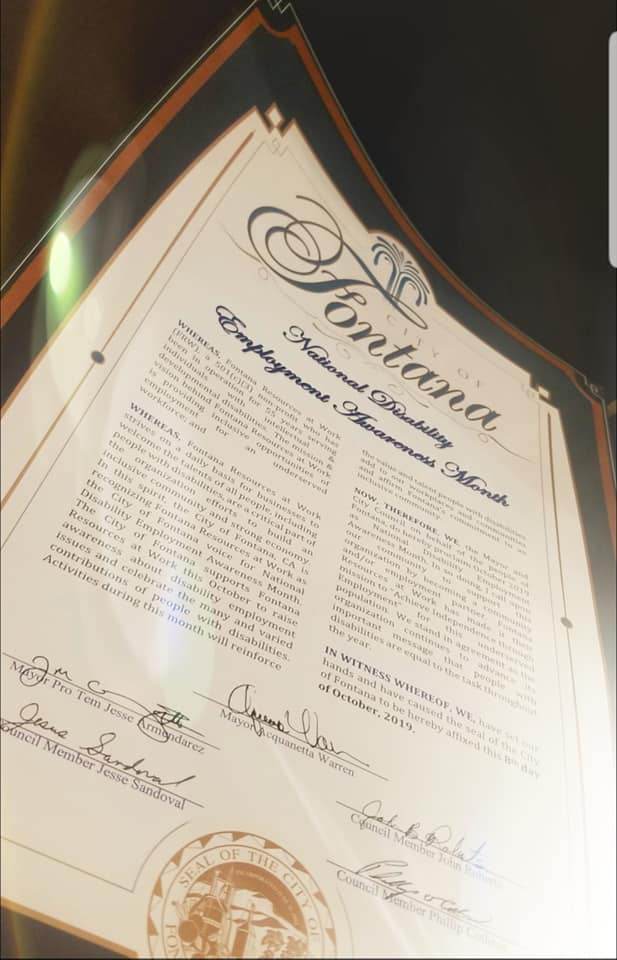 CITY OF
Fontana
National Disability
Employment Awareness Month
WHEREAS, Fontana Resources at Work
(FRW), a 501(c)(3) non profit who has
been in operation for 55 years serving
individuals with intellectual and
developmental disabilities. The mission &
vision behind Fontana Resources at Work
is providing inclusive opportunities of
employment for an underserved
workforce; and
WHEREAS, Fontana Resources at Work
strives on a daily basis for businesses to
welcome the talents of all people, including
people with disabilities, are a critical part in
the organization's efforts to build an
inclusive community and strong economy.
In this spirit, the City of Fontana, CA is
recognizing Fontana Resources at Work as
the City of Fontana voice for National
Disability Employment Awareness Month.
The City of Fontana supports Fontana
Resources at Work this October to raise
awareness about disability employment
issues and celebrate the many and varied
contributions of people with disabilities.
Activities during this month will reinforce
the value and talent people with disabilities
add to our workplaces and communities
and affirm Fontana's commitment to an
inclusive community.
NOW, THEREFORE, WE, the Mayor and
City Council, on behalf of the people of
Fontana, do hereby
National Disability Employment
Awareness Month. In so doing, I call upon
our community to support this
organization by becoming a partner
and/or employment partner. Fontana
Resources at Work has made it their
mission to "Achieve Independence through
Employment" for this underserved
population. We stand in agreement as the
organization continues to advance its
important message that people with
disabilities are equal to the task throughout
the year.
IN WITNESS WHEREOF, WE, have set our
hands and have caused the seal of the City
of Fontana to be hereby affixed this 8th day
of October, 2019.
Mayor Pro Tem Jesse Armendarez
Mayor Acquanetta Warren
Council Member Jesse Sandoval
Council Member John
Council Member Phillip
SEAL OF THE CITY OF